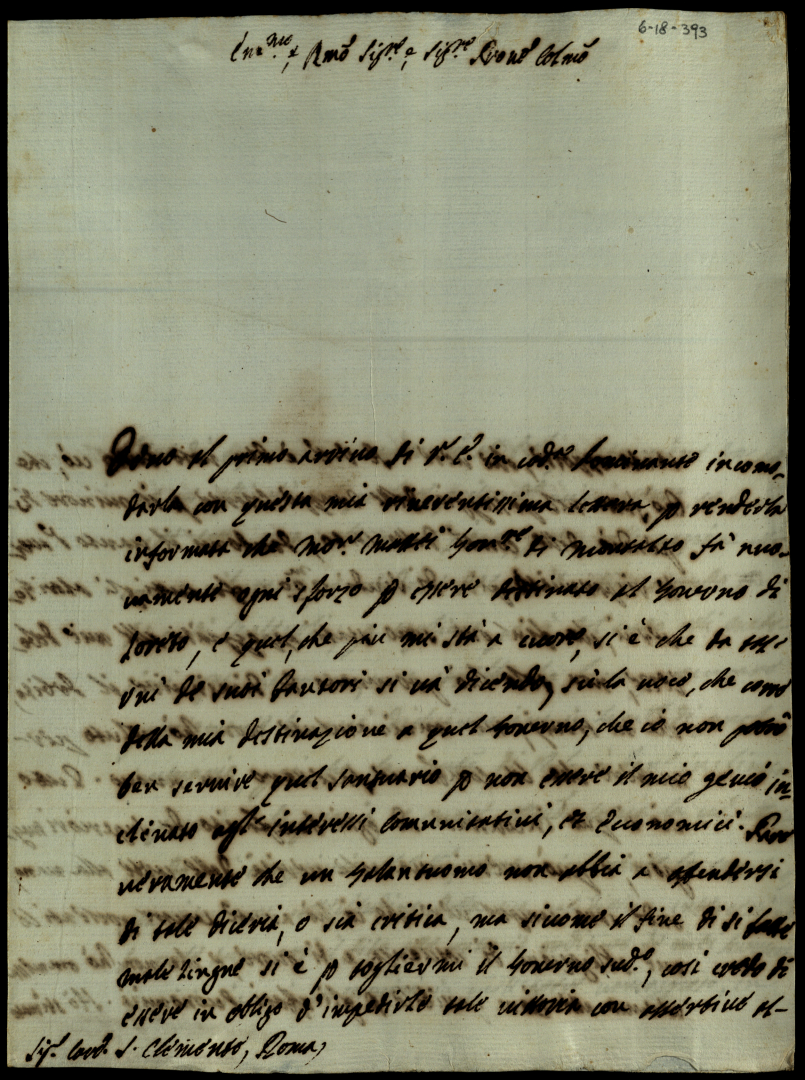 6-18-393
Em.mo, e Rmo Sig.re, e Sig.re Prone Colmo
al primo arrivo di V. E. in cod.a Dominante incomo-
darla con questa mia riverentissima lettera, p renderla
informata che Mon.r Mattei Gov.re di Montalto fà nuo-
vamente ogni sforzo p essere destinato al Governo di
Loreto, e quel, che più mi stà a cuore, si è che da
uni de suoi fautori si và dicendo, sù la voce, che corre
della mia destinazione a quel Governo, che io non potrò
ben servire quel Santuario p non essere il mio genio in-
clinato agl' interessi Comunitativi, et Economici. Pare
veramente che un Galantuomo non abbia a offendersi
di tale diceria, o sia critica, ma siccome il fine di si fatte
male lingue si è p togliermi il Governo sud.o, così credo di
essere in obligo d'impedirle tale vittoria con assertive al-
Sig.r Card. S. Clemente, Roma